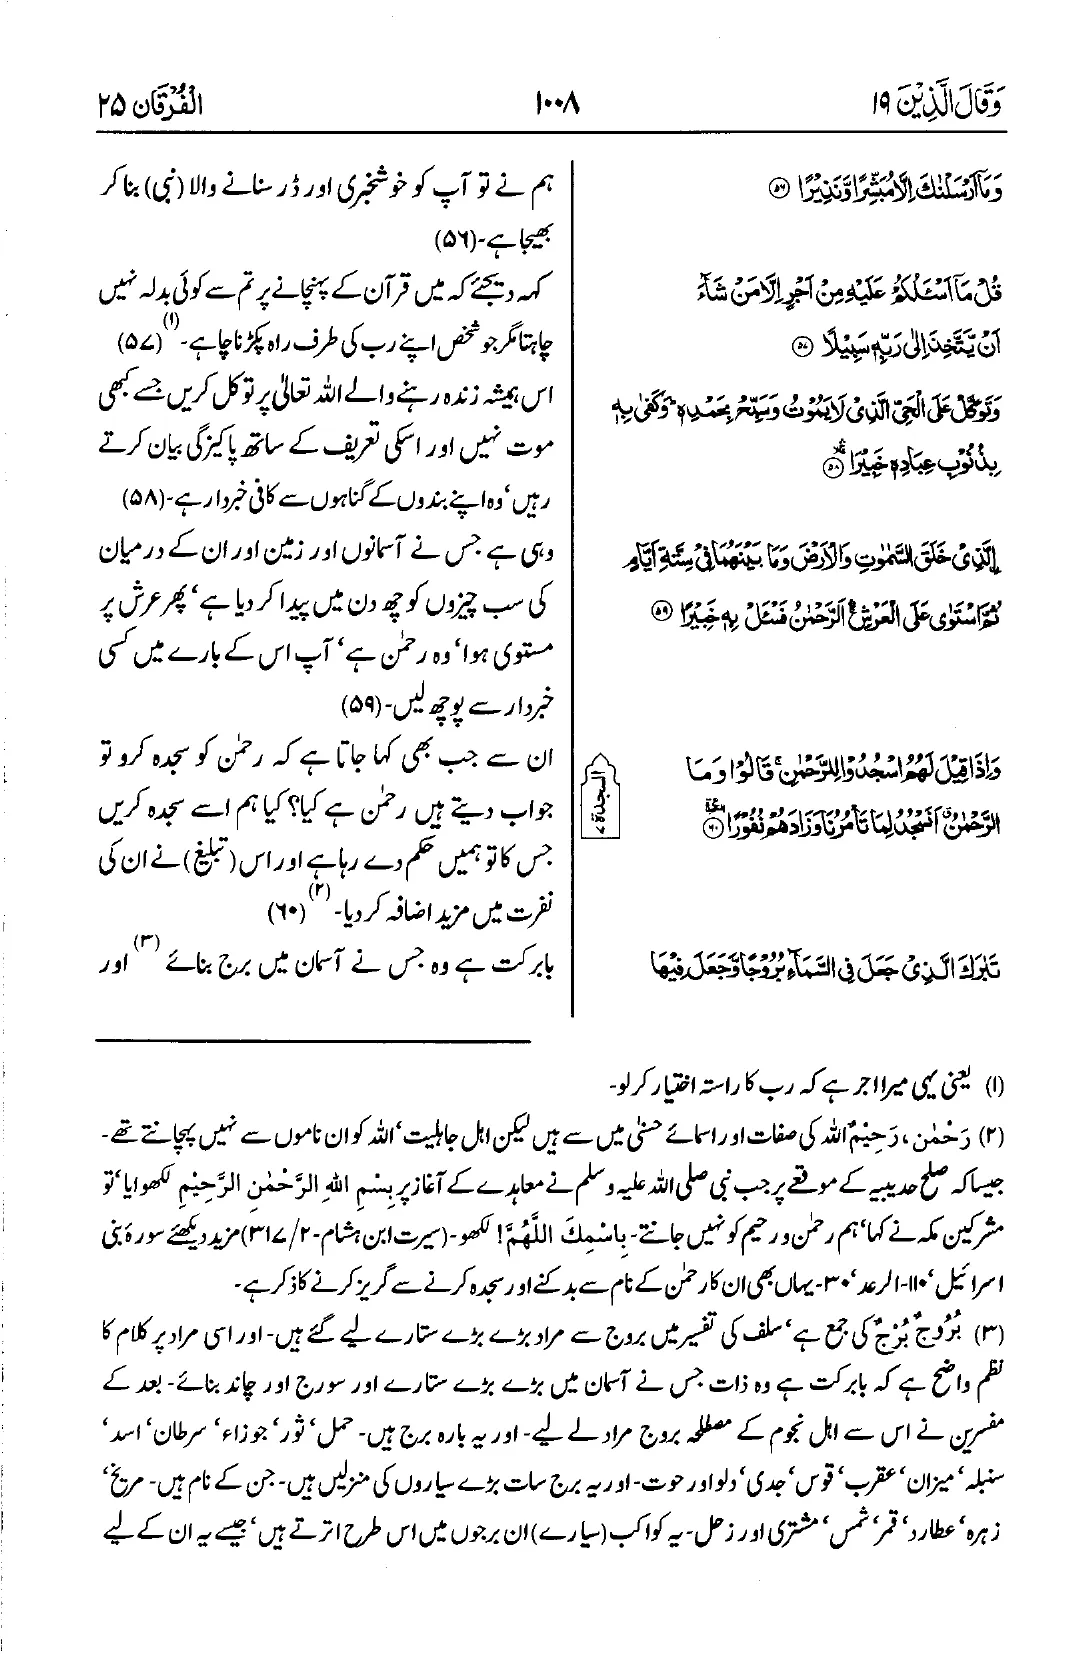 وَقَالَ الَّذِيْنَ ۱۹
۱۰۰۸
الْفُرْقَان ۲۵
وَمَآ اَرْسَلْنٰكَ اِلَّا مُبَشِّرًا وَّنَذِيْرًا ۝۵۶
قُلْ مَآ اَسْـَٔلُكُمْ عَلَيْهِ مِنْ اَجْرٍ اِلَّا مَنْ شَآءَ
اَنْ يَّتَّخِذَ اِلٰى رَبِّهٖ سَبِيْلًا ۝۵۷
وَتَوَكَّلْ عَلَى الْحَيِّ الَّذِيْ لَا يَمُوْتُ وَسَبِّحْ بِحَمْدِهٖ ۭ وَكَفٰى بِهٖ
بِذُنُوْبِ عِبَادِهٖ خَبِيْرَۨا ۝۵۸
الَّذِيْ خَلَقَ السَّمٰوٰتِ وَالْاَرْضَ وَمَا بَيْنَهُمَا فِيْ سِتَّةِ اَيَّامٍ
ثُمَّ اسْتَوٰى عَلَى الْعَرْشِ ۚ اَلرَّحْمٰنُ فَسْـَٔلْ بِهٖ خَبِيْرًا ۝۵۹
وَاِذَا قِيْلَ لَهُمُ اسْجُدُوْا لِلرَّحْمٰنِ ۚ قَالُوْا وَمَا
الرَّحْمٰنُ ۤ اَنَسْجُدُ لِمَا تَاْمُرُنَا وَزَادَهُمْ نُفُوْرًا ۝۶۰
السجدة ۷
تَبٰرَكَ الَّذِيْ جَعَلَ فِي السَّمَآءِ بُرُوْجًا وَّجَعَلَ فِيْهَا
ہم نے تو آپ کو خوشخبری اور ڈر سنانے والا (نبی) بنا کر
بھیجا ہے۔ (۵۶)
کہہ دیجئے کہ میں قرآن کے پہنچانے پر تم سے کوئی بدلہ نہیں
چاہتا مگر جو شخص اپنے رب کی طرف راہ پکڑنا چاہے۔ (۱) (۵۷)
اس ہمیشہ زندہ رہنے والے اللہ تعالیٰ پر توکل کریں جسے کبھی
موت نہیں اور اسکی تعریف کے ساتھ پاکیزگی بیان کرتے
رہیں‘ وہ اپنے بندوں کے گناہوں سے کافی خبردار ہے۔ (۵۸)
وہی ہے جس نے آسمانوں اور زمین اور ان کے درمیان
کی سب چیزوں کو چھ دن میں پیدا کر دیا ہے‘ پھر عرش پر
مستوی ہوا‘ وہ رحمٰن ہے‘ آپ اس کے بارے میں کسی
خبردار سے پوچھ لیں۔ (۵۹)
ان سے جب بھی کہا جاتا ہے کہ رحمٰن کو سجدہ کرو تو
جواب دیتے ہیں رحمٰن ہے کیا؟ کیا ہم اسے سجدہ کریں
جس کا تو ہمیں حکم دے رہا ہے اور اس (تبلیغ) نے ان کی
نفرت میں مزید اضافہ کر دیا۔ (۲) (۶۰)
بابرکت ہے وہ جس نے آسمان میں برج بنائے (۳) اور
(۱) یعنی یہی میرا اجر ہے کہ رب کا راستہ اختیار کر لو۔
(۲) رَحْمٰن، رَحِيْمٌ اللہ کی صفات اور اسمائے حسنیٰ میں سے ہیں لیکن اہل جاہلیت‘ اللہ کو ان ناموں سے نہیں پہچانتے تھے۔
جیسا کہ صلح حدیبیہ کے موقعے پر جب نبی صلی اللہ علیہ وسلم نے معاہدے کے آغاز پر بِسْمِ اللهِ الرَّحْمٰنِ الرَّحِيْمِ لکھوایا‘ تو
مشرکین مکہ نے کہا‘ ہم رحمٰن و رحیم کو نہیں جانتے۔ بِاسْمِكَ اللّٰهُمَّ! لکھو۔ (سیرت ابن ہشام۔ ۲/ ۳۱۷) مزید دیکھئے سورۂ بنی
اسرائیل‘ ۱۱۰۔ الرعد‘ ۳۰۔ یہاں بھی ان کا رحمٰن کے نام سے بدکنے اور سجدہ کرنے سے گریز کرنے کا ذکر ہے۔
(۳) بُرُوْجٌ بُرْجٌ کی جمع ہے‘ سلف کی تفسیر میں بروج سے مراد بڑے بڑے ستارے لیے گئے ہیں۔ اور اسی مراد پر کلام کا
نظم واضح ہے کہ بابرکت ہے وہ ذات جس نے آسمان میں بڑے بڑے ستارے اور سورج اور چاند بنائے۔ بعد کے
مفسرین نے اس سے اہل نجوم کے مصطلحہ بروج مراد لے لیے۔ اور یہ بارہ برج ہیں۔ حمل‘ ثور‘ جوزاء‘ سرطان‘ اسد‘
سنبلہ‘ میزان‘ عقرب‘ قوس‘ جدی‘ دلو اور حوت۔ اور یہ برج سات بڑے سیاروں کی منزلیں ہیں۔ جن کے نام ہیں۔ مریخ‘
زہرہ‘ عطارد‘ قمر‘ شمس‘ مشتری اور زحل۔ یہ کواکب (سیارے) ان برجوں میں اس طرح اترتے ہیں‘ جیسے یہ ان کے لیے